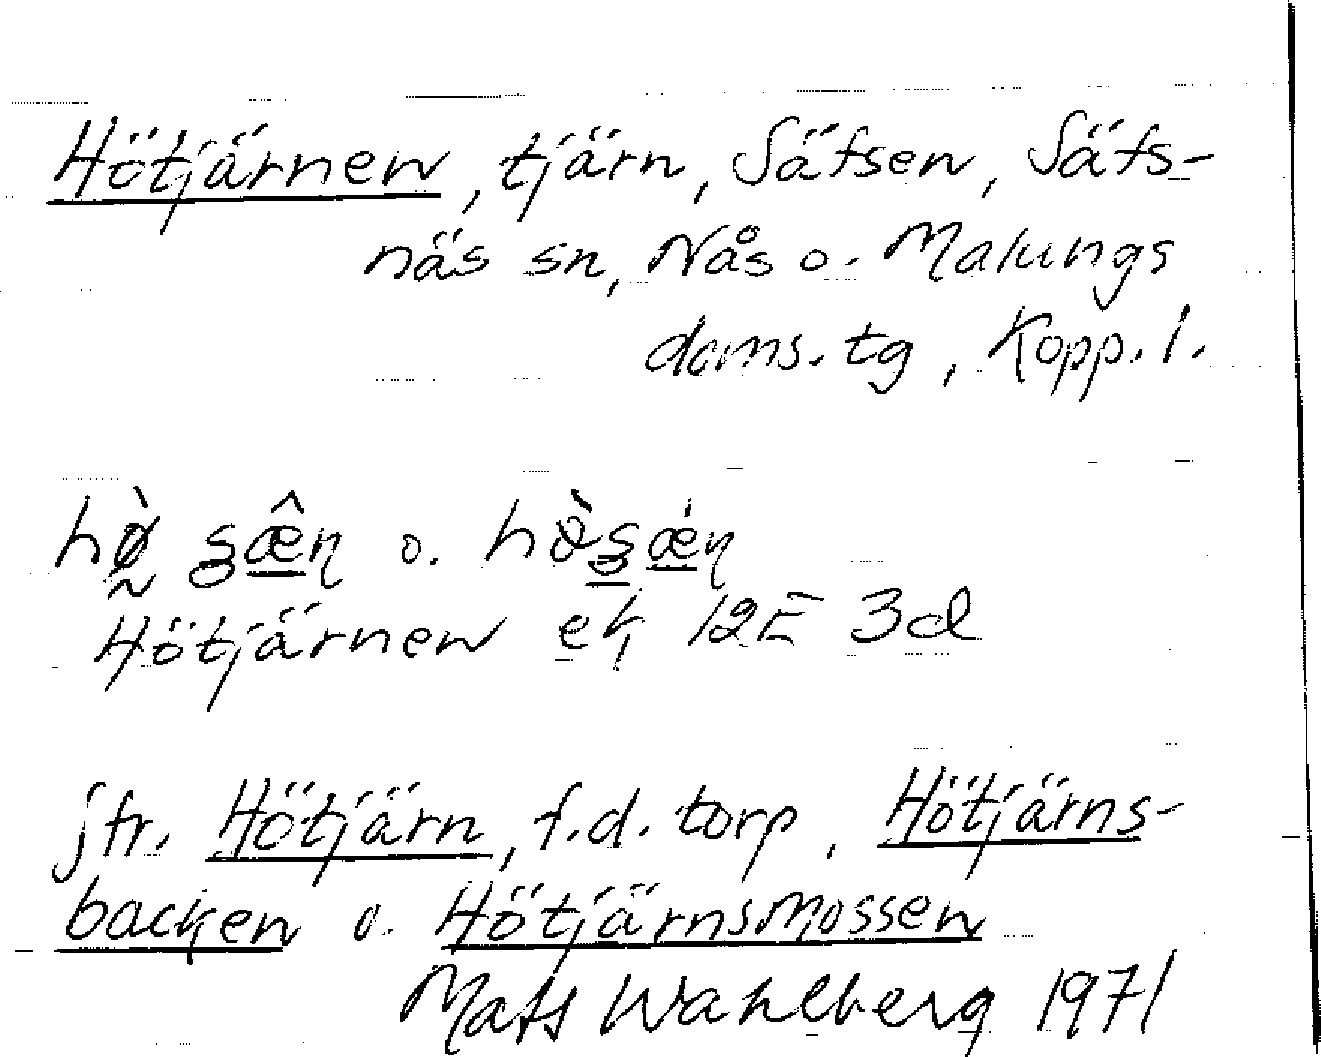 Hötjärnen, tjärn, Säfsen, Säfs-
näs sn, Nås o. Malungs
doms. tg, Kopp. l.
o.
Hötjärnen ek 12E 3d
jfr. Hötjärn, f.d. torp, Hötjärns-
backen o. Hötjärnsmossen
Mats Wahlberg 1971